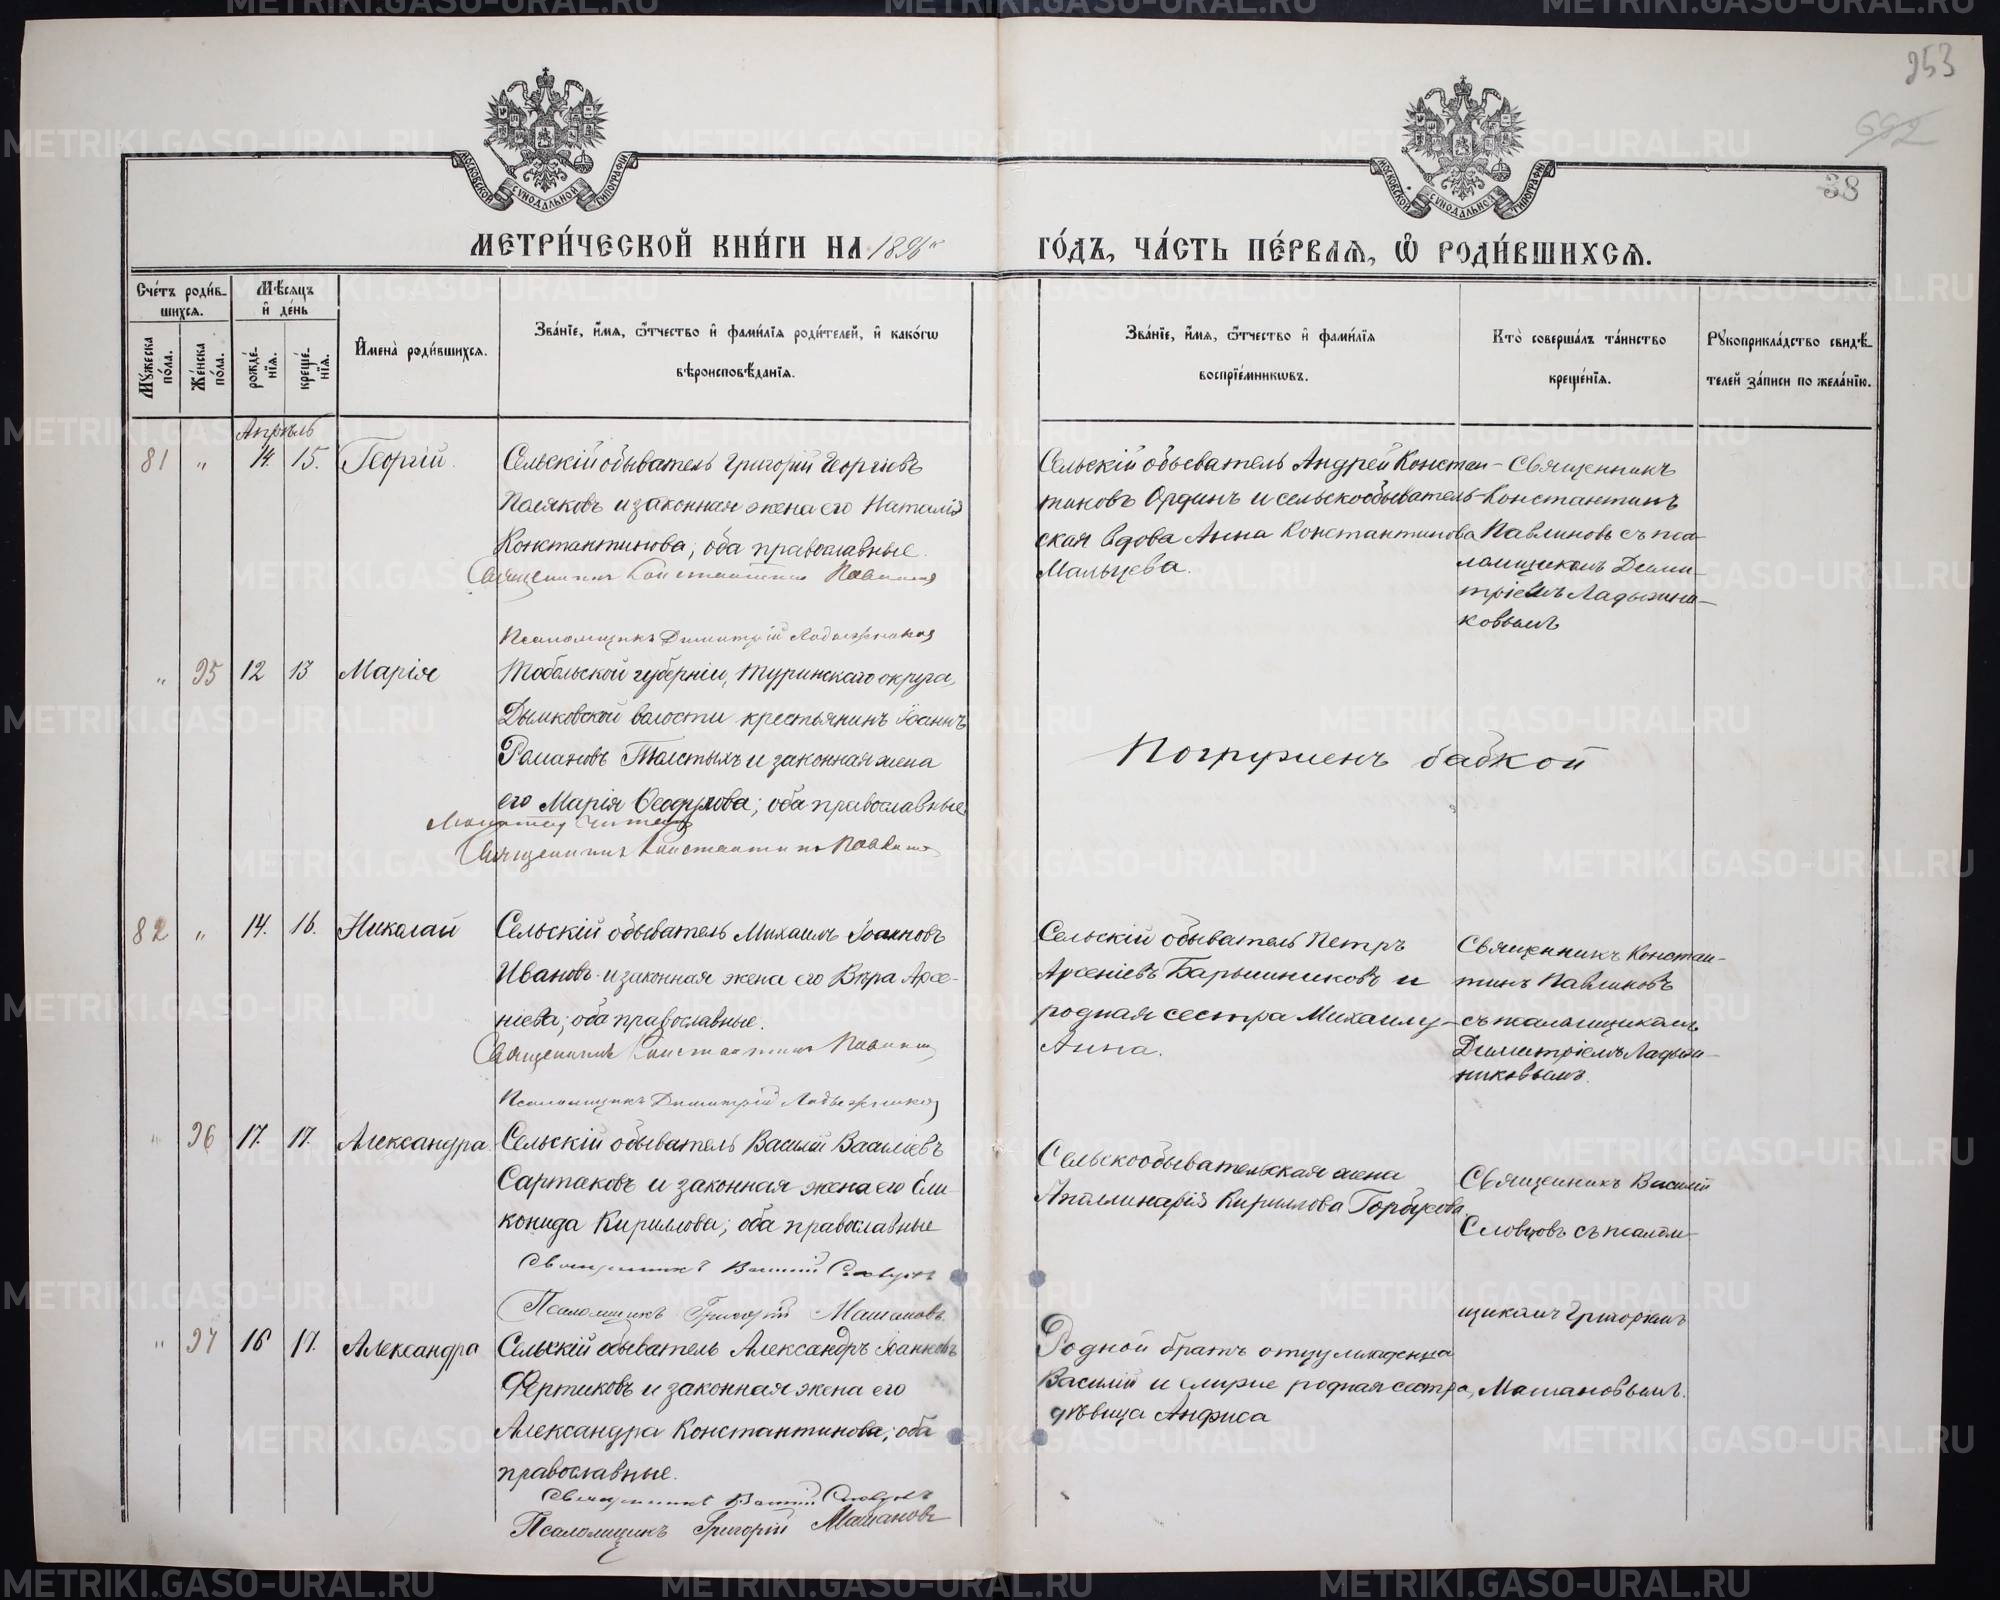 253
692
38
МОСКОВСКОЙ СѴНОДАЛЬНОЙ ТИПОГРАФІИ
МОСКОВСКОЙ СѴНОДАЛЬНОЙ ТИПОГРАФІИ
МЕТРИ́ЧЕСКОЙ КНИ́ГИ НА 1896й ГО́ДЪ, ЧА́СТЬ ПЕ́РВАѦ, Ѡ҆ РОДИ́ВШИХСѦ.
Сче́тъ роди́вшихсѧ.
Мꙋ́жеска по́ла.
Же́нска по́ла.
Мѣ́сѧцъ и҆ де́нь
рожде́нїѧ.
креще́нїѧ.
И҆мена̀ роди́вшихсѧ.
Зва́нїе, и҆́мѧ, ѻ҆́тчество и҆ фами́лїѧ роди́телей, и҆ како́гѡ
вѣроисповѣ́данїѧ.
Зва́нїе, и҆́мѧ, ѻ҆́тчество и҆ фами́лїѧ
воспрїе́мникѡвъ.
Кто̀ соверша́лъ та́инство
креще́нїѧ.
Рꙋкоприкла́дство свидѣ́-
телей за́писи по жела́нїю.
Апрѣль
81 " 14. 15. Георгій.
Сельскій обыватель Григорій Георгіевъ
Поляковъ и законная жена его Наталія
Константинова; оба православные.
Священникъ Константинъ Павлиновъ
Псаломщикъ Димитрій Ладыжниковъ
Сельскій обыватель Андрей Констан-
тиновъ Ординъ и сельскообыватель-
ская вдова Анна Константинова
Мальцева.
Священникъ
Константинъ
Павлиновъ съ пса-
ломщикомъ Дими-
тріемъ Ладыжни-
ковымъ
" 95 12 13 Марія
Тобольской губерніи, Туринскаго округа,
Дымковской волости крестьянинъ Іоаннъ
Романовъ Толстыхъ и законная жена
его Марія Ѳеодулова; оба православные.
Священникъ Константинъ Павлиновъ
Погруженъ бабкой
82 " 14. 16. Николай
Сельскій обыватель Михаилъ Іоанновъ
Ивановъ и законная жена его Вѣра Арсе-
ніева; оба православные.
Священникъ Константинъ Павлиновъ
Псаломщикъ Димитрій Ладыжниковъ
Сельскій обыватель Петръ
Арсеніевъ Барышниковъ и
родная сестра Михаилу
Анна.
Священникъ Констан-
тинъ Павлиновъ
съ псаломщикомъ
Димитріемъ Ладыж-
никовымъ.
" 96 17. 17. Александра
Сельскій обыватель Василій Васильевъ
Сартаковъ и законная жена его Ели-
конида Кириллова; оба православные
Священникъ Василій Словцовъ
Псаломщикъ Григорій Машановъ.
Сельскообывательская жена
Аполлинарія Кириллова Горбунова.
Священникъ Василій
Словцовъ съ псалом-
щикомъ Григоріемъ
Машановымъ.
" 97 16 17. Александра
Сельскій обыватель Александръ Іоанновъ
Фертиковъ и законная жена его
Александра Константинова; оба
православные.
Священникъ Василій Словцовъ
Псаломщикъ Григорій Машановъ
Родной братъ отцу младенца
Василій и родная сестра,
дѣвица Анфиса
METRIKI.GASO-URAL.RU